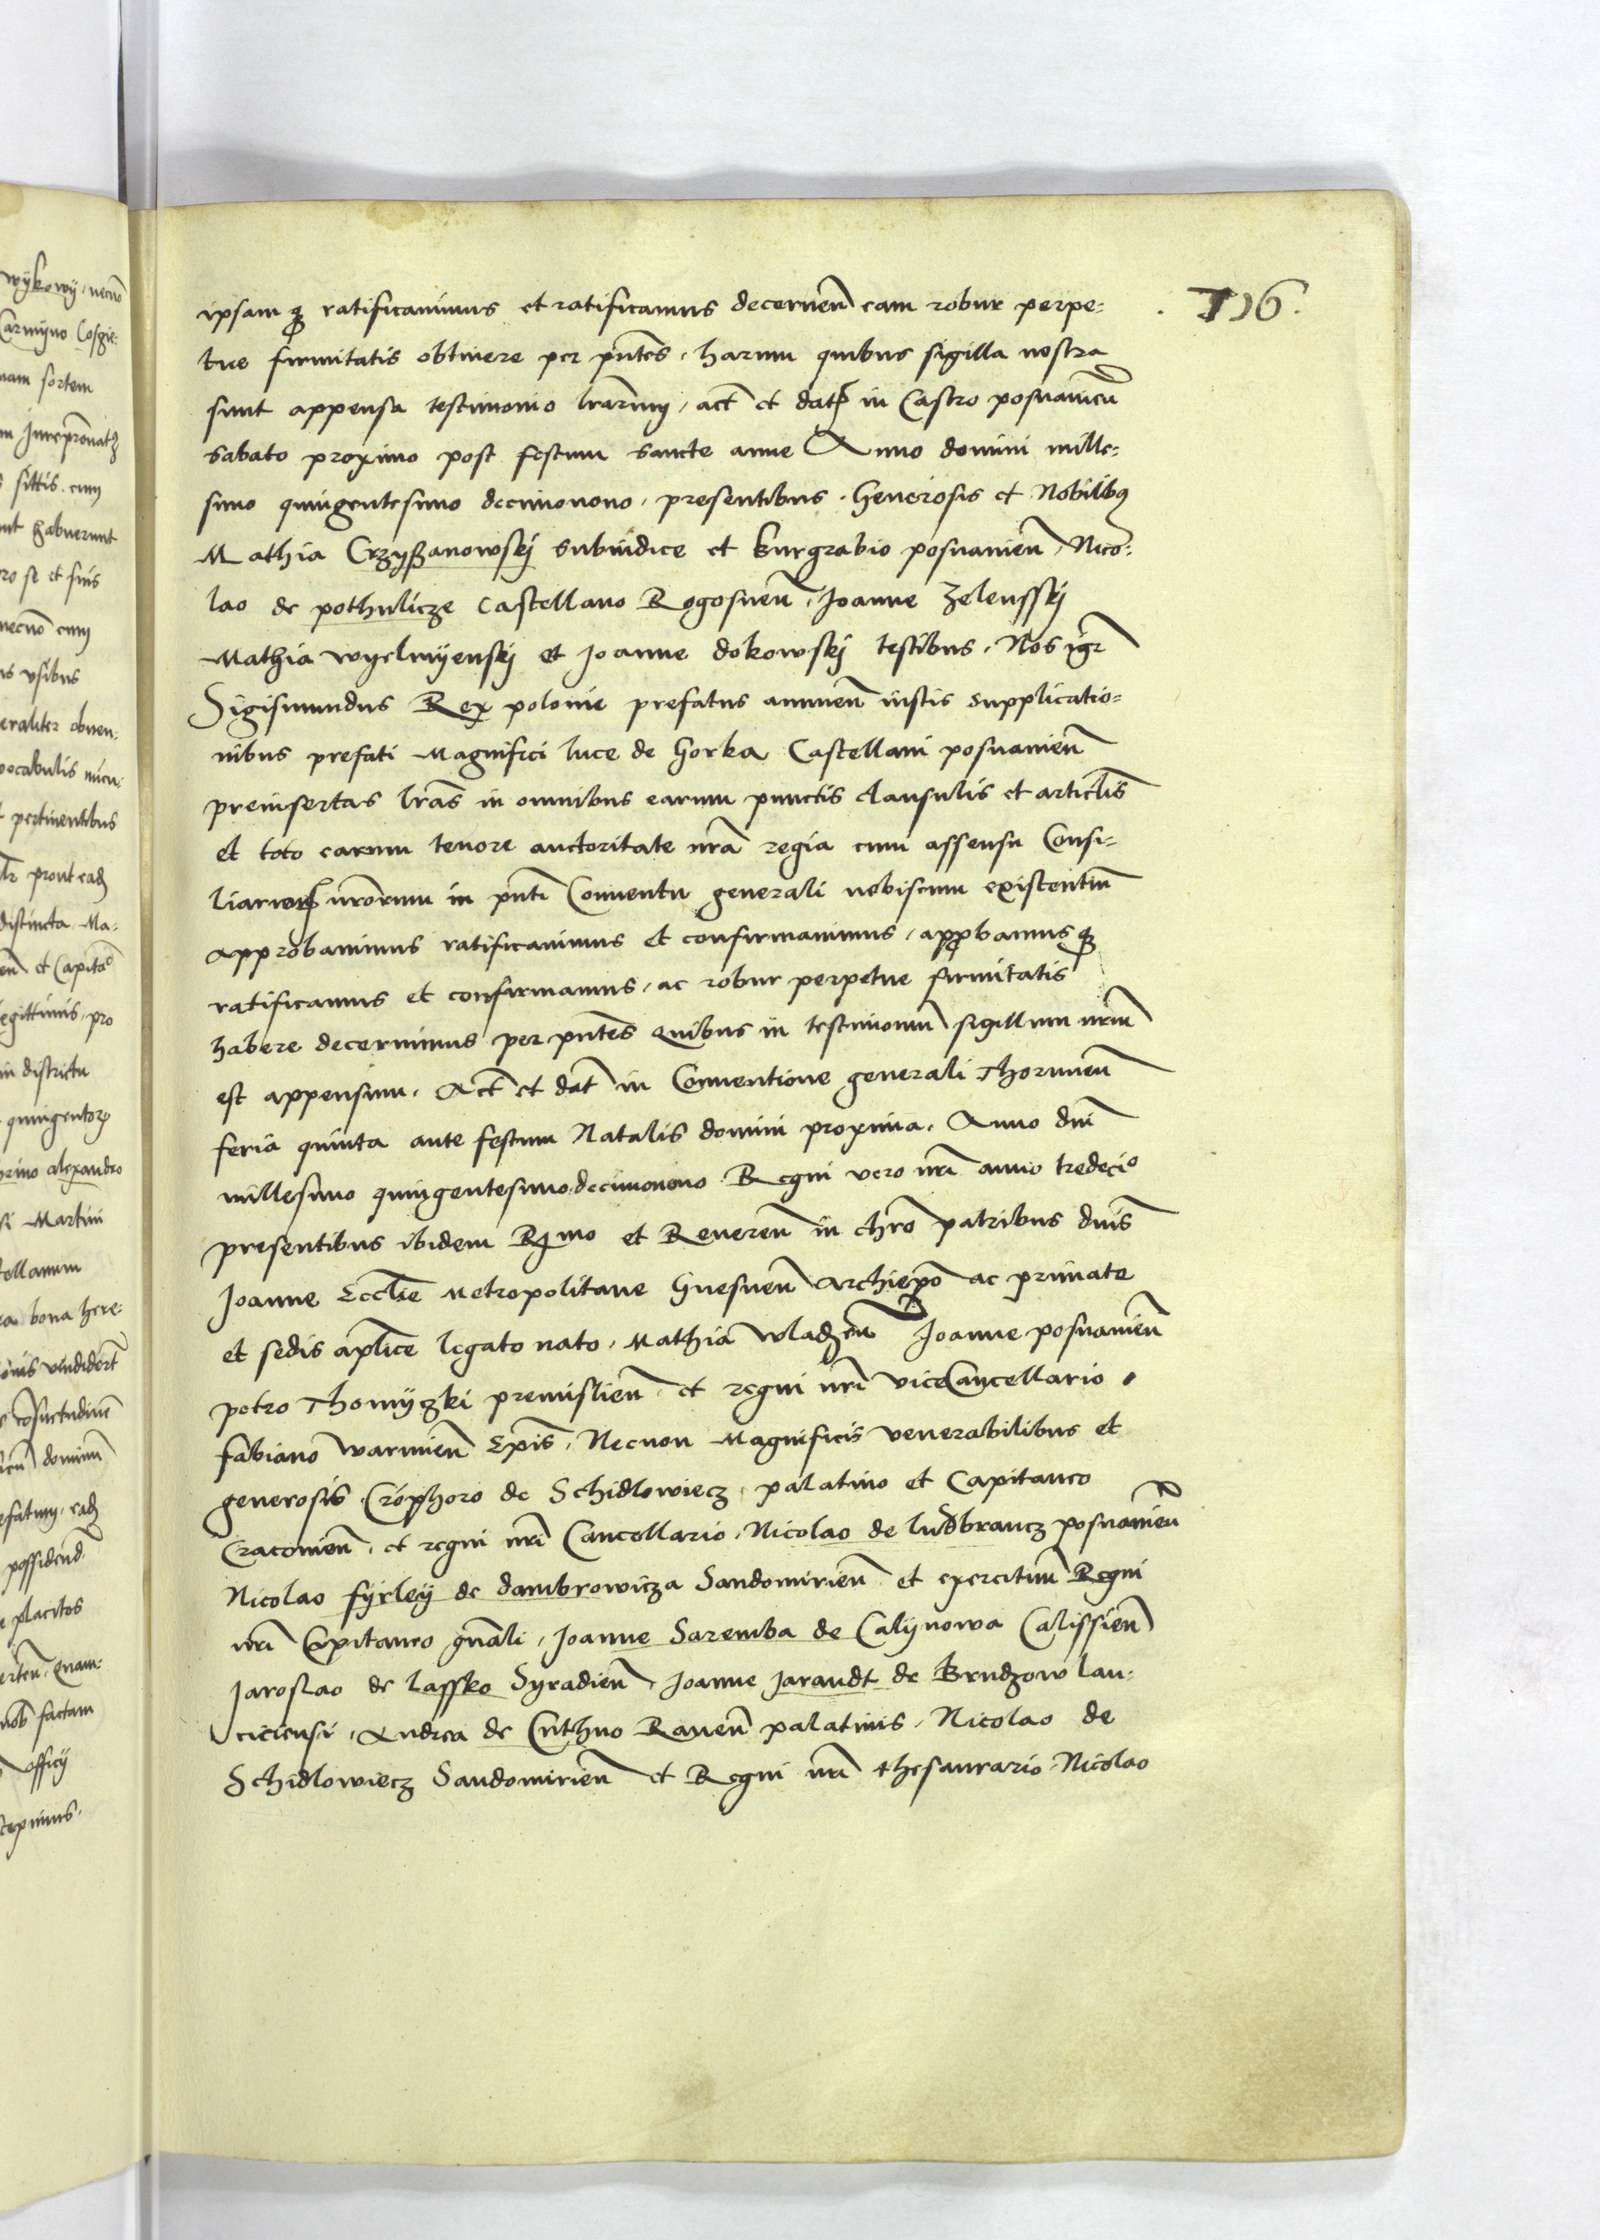 ipsamq3 ratificavimus et ratificamus decernen̄ eam robur perpe-
. 116.
tue firmitatis obtinere per pn̄tes, harum quibus sigilla nostra
sunt appensa testimonio lrarum, act̄ et dat̄ in Castro posnanien̄
sabato proximo post festum sancte anne Anno domini mille-
simo quingentesimo decimonono, presentibus Generosis et Nobilibus
Mathia Crzyßanowskÿ subiudice et burgrabio posnanien̄, Nico-
lao de pothulicze Castellano Rogosnen̄, Joanne Zelensskÿ
Mathia wyelmÿenskÿ et Joanne dokowskÿ testibus, Nos igr̄
Sigismundus Rex polonie prefatus annuen̄ iustis supplicatio-
nibus prefati Magnifici luce de Gorka Castellani posnanien̄
preinsertas lrās in omnibus earum punctis clausulis et articlis̄
et toto earum tenore auctoritate nrā regia cum assensu Consi-
liariorum nrōrum in pn̄ti Conventu generali nobiscum existentium̄
approbavimus ratificavimus et confirmavimus, approbamusq3
ratificamus et confirmamus, ac robur perpetue firmitatis
habere decernimus per pn̄tes Quibus in testimonium̄ sigillum nrūm
est appensum. Act̄ et dat̄ in Conventione generali Thorunien̄
feria quinta ante festum Natalis domini proxima. Anno dnī
millesimo quingentesimo decimonono Regni vero nrī anno tredecio
presentibus ibidem Rmo et Reveren̄ in chrō patribus dnīs
Joanne Eccl̄ie Metropolitane Gnesnen̄ Archiepō ac primate
et sedis aplīce legato nato, Mathia wladzen̄ Joanne posnanien̄
petro Thomÿczki premislien̄ et regni nrī viceCancellario,
fabiano warmien̄ Epīs, Necnon Magnificis venerabilibus et
generosis Crōphoro de Schidlowiecz palatino et Capitaneo
Cracovien̄, et regni nrī Cancellario, Nicolao de ludbrancz posnanien̄
Nicolao fÿrleÿ de dambrowicza Sandomirien̄ et exercituum̄ Regni
nrī Capitaneo gn̄ali, Joanne Zaremba de Calÿnowa Calissien̄
Jaroslao de lassko Syradien̄, Joanne Jarandt de Brudzow lan-
ciciensi, Andrea de Cuthno Raven̄ palatinis, Nicolao de
Schidlowiecz Sandomirien̄ et Regni nrī thesaurario, Nicolao